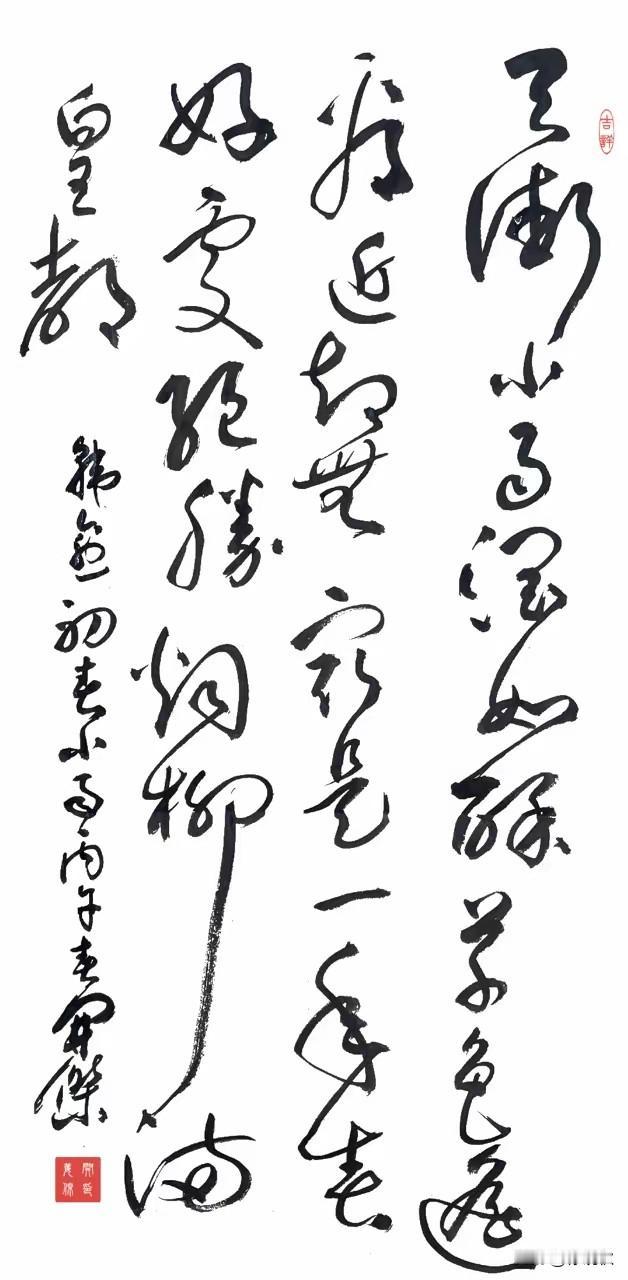 天街小雨润如酥草色遥
看近却無最是一年春
好處絕勝烟柳满
皇都
韩愈初春小雨丙午春開傑
吉祥